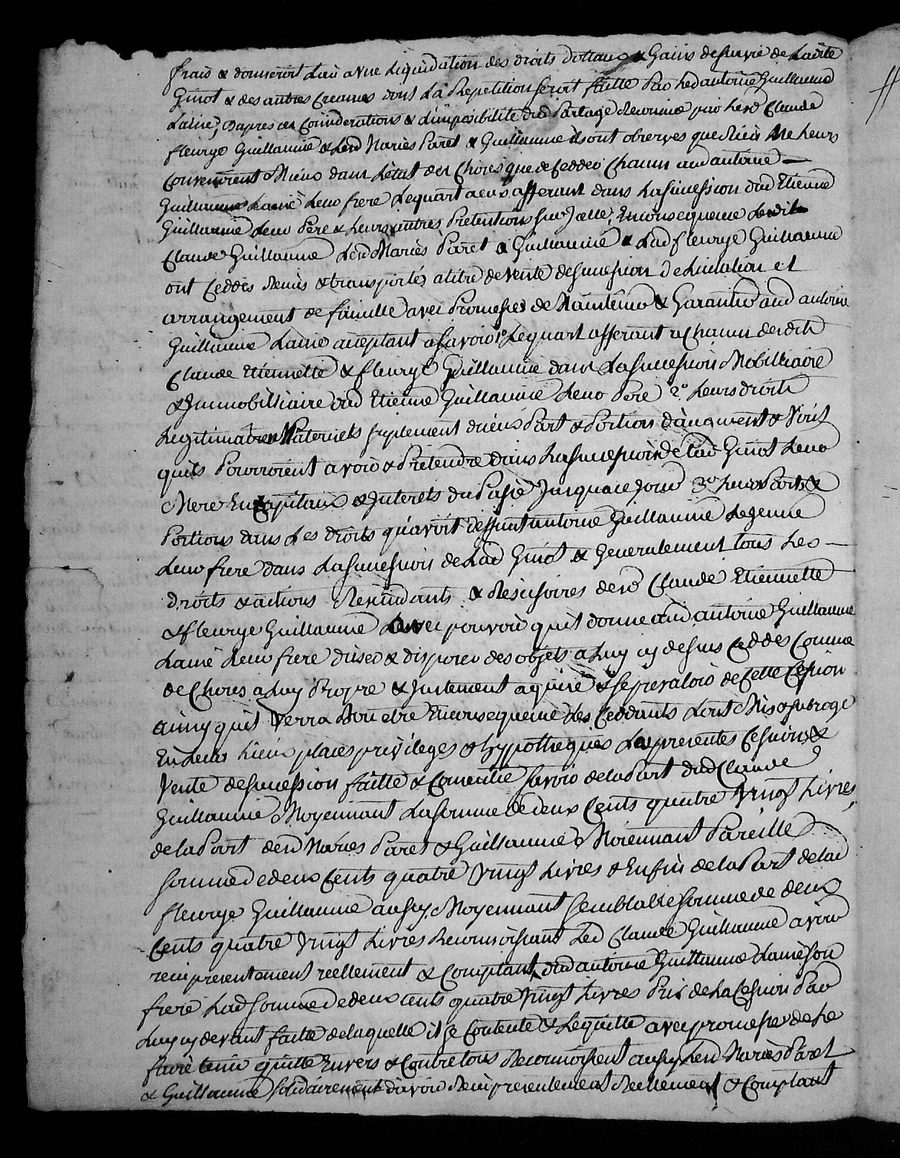 fraid & donneroit Lieu a une Liquidation des droits dottaux & Gains de survie de Ladite
Ginot & des autres Creances dont La Repetition seroit faitte Par Led antoine Guillaume
Lainé, Dapres ces Considerations & Limpossibilité dud Partage Reconnüe par Lesd Claude
fleurye Guillaume & Lesd Mariés Paret & Guillaume ils ont observes que Rien Ne leurs
Convenoient Mieux dans Letat des Choses que de Cedder Chacun aud antoine
Guillaume Lainé Leur frere Lequart a eux afferant dans La succession dud Etienne
Guillaume Leur Pere & Leurs autres Pretentions sur Icelle, En consequence Lesdits
Claude Guillaume Lesd Mariés Paret & Guillaume & Lad fleurye Guillaume
ont Ceddés Remis & transportés a titre de vente de succession de Licitation et
arrangement de famille avec Promesses de Maintenir & Garantir aud antoine
Guillaume Lainé acceptant a savoir 1° Le quart afferant a Chacun desdits
Claude Etiennette & fleurye Guillaume dans La succession Mobilliaire
& Immobilliaire dud Etienne Guillaume Leur Pere 2° Leurs droits
Legitimaires Maternels suplement diceux Part & Portion daugment & Virils
quils Pouroient avoir & Pretendre dans La succession de Lad Ginot Leur
Mere En Capitaux & Interets du Passé Jusqua ce Jour 3° Leurs Parts &
Portions dans Les droits quavoit deffunt antoine Guillaume Le Jeune
Leur frere dans La succession de Lad Ginot & Generalement tous Les
droits & actions Rescindants & Rescisoires desd Claude Etiennette
& fleurye Guillaume avec pouvoir quils donne aud antoine Guillaume
Lainé Leur frere duser & disposer des objets a Luy cy dessus Ceddés Comme
de Choses a Luy Propre & Justement aquise & se prevaloir de Cette Cession
ainsy quil Verra Bon etre En consequence Les Ceddants Lont Mis & subrogé
En Leurs Lieux places privileges & hypotheques La presentes Cession &
Vente de succession faitte & Convenüe savoir de la Part dud Claude
Guillaume Moyennant La somme de deux Cents quatre Vingt Livres,
de la Part desd Mariés Paret & Guillaume Moiennant Pareille
somme de deux Cents quatre Vingt Livres & Enfin de la Part de lad
fleurye Guillaume aussy Moyennant semblable somme de deux
Cents quatre Vingt Livres Reconnoissant Led Claude Guillaume avoir
reçu presentement reellement & Comptant dud antoine Guillaume Lainé son
frere Lad somme de deux cents quatre Vingt Livres Prix de La Cession Par
Luy cy devant faitte de laquelle il se Contente & Lequitte avec promesse de Le
faire tenir quitte Envers & Contre tous Reconnoissent aussy Lesd Mariés Paret
& Guillaume solidairement davoir Reçu presentement Reellement & Comptant